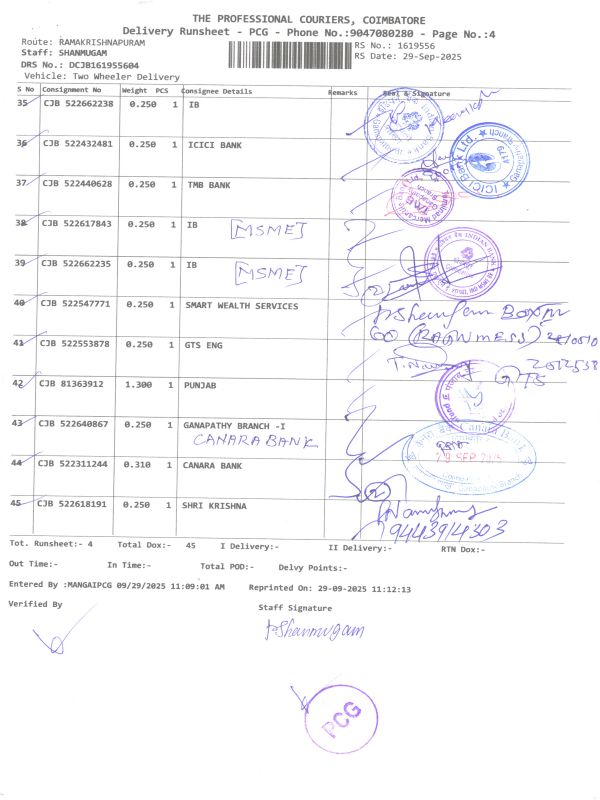 THE PROFESSIONAL COURIERS, COIMBATORE
Delivery Runsheet - PCG - Phone No.:9047080280 - Page No.:4
Route: RAMAKRISHNAPURAM
RS No.: 1619556
Staff: SHANMUGAM
RS Date: 29-Sep-2025
DRS No.: DCJB161955604
Vehicle: Two Wheeler Delivery
S No Consignment No Weight PCS Consignee Details Remarks Seal & Signature
35 CJB 522662238 0.250 1 IB
36 CJB 522432481 0.250 1 ICICI BANK
ICICI Bank Ltd.
37 CJB 522440628 0.250 1 TMB BANK
38 CJB 522617843 0.250 1 IB [MSME]
INDIAN BANK
39 CJB 522662235 0.250 1 IB [MSME]
40 CJB 522547771 0.250 1 SMART WEALTH SERVICES
41 CJB 522553878 0.250 1 GTS ENG
GTS
42 CJB 81363912 1.300 1 PUNJAB
43 CJB 522640867 0.250 1 GANAPATHY BRANCH -I
CANARA BANK
Canara Bank
44 CJB 522311244 0.310 1 CANARA BANK
2
45 CJB 522618191 0.250 1 SHRI KRISHNA
9443914303
Tot. Runsheet:- 4 Total Dox:- 45 I Delivery:- II Delivery:- RTN Dox:-
Out Time:- In Time:- Total POD:- Delvy Points:-
Entered By :MANGAIPCG 09/29/2025 11:09:01 AM Reprinted On: 29-09-2025 11:12:13
Verified By Staff Signature
Shanmugam
PCG